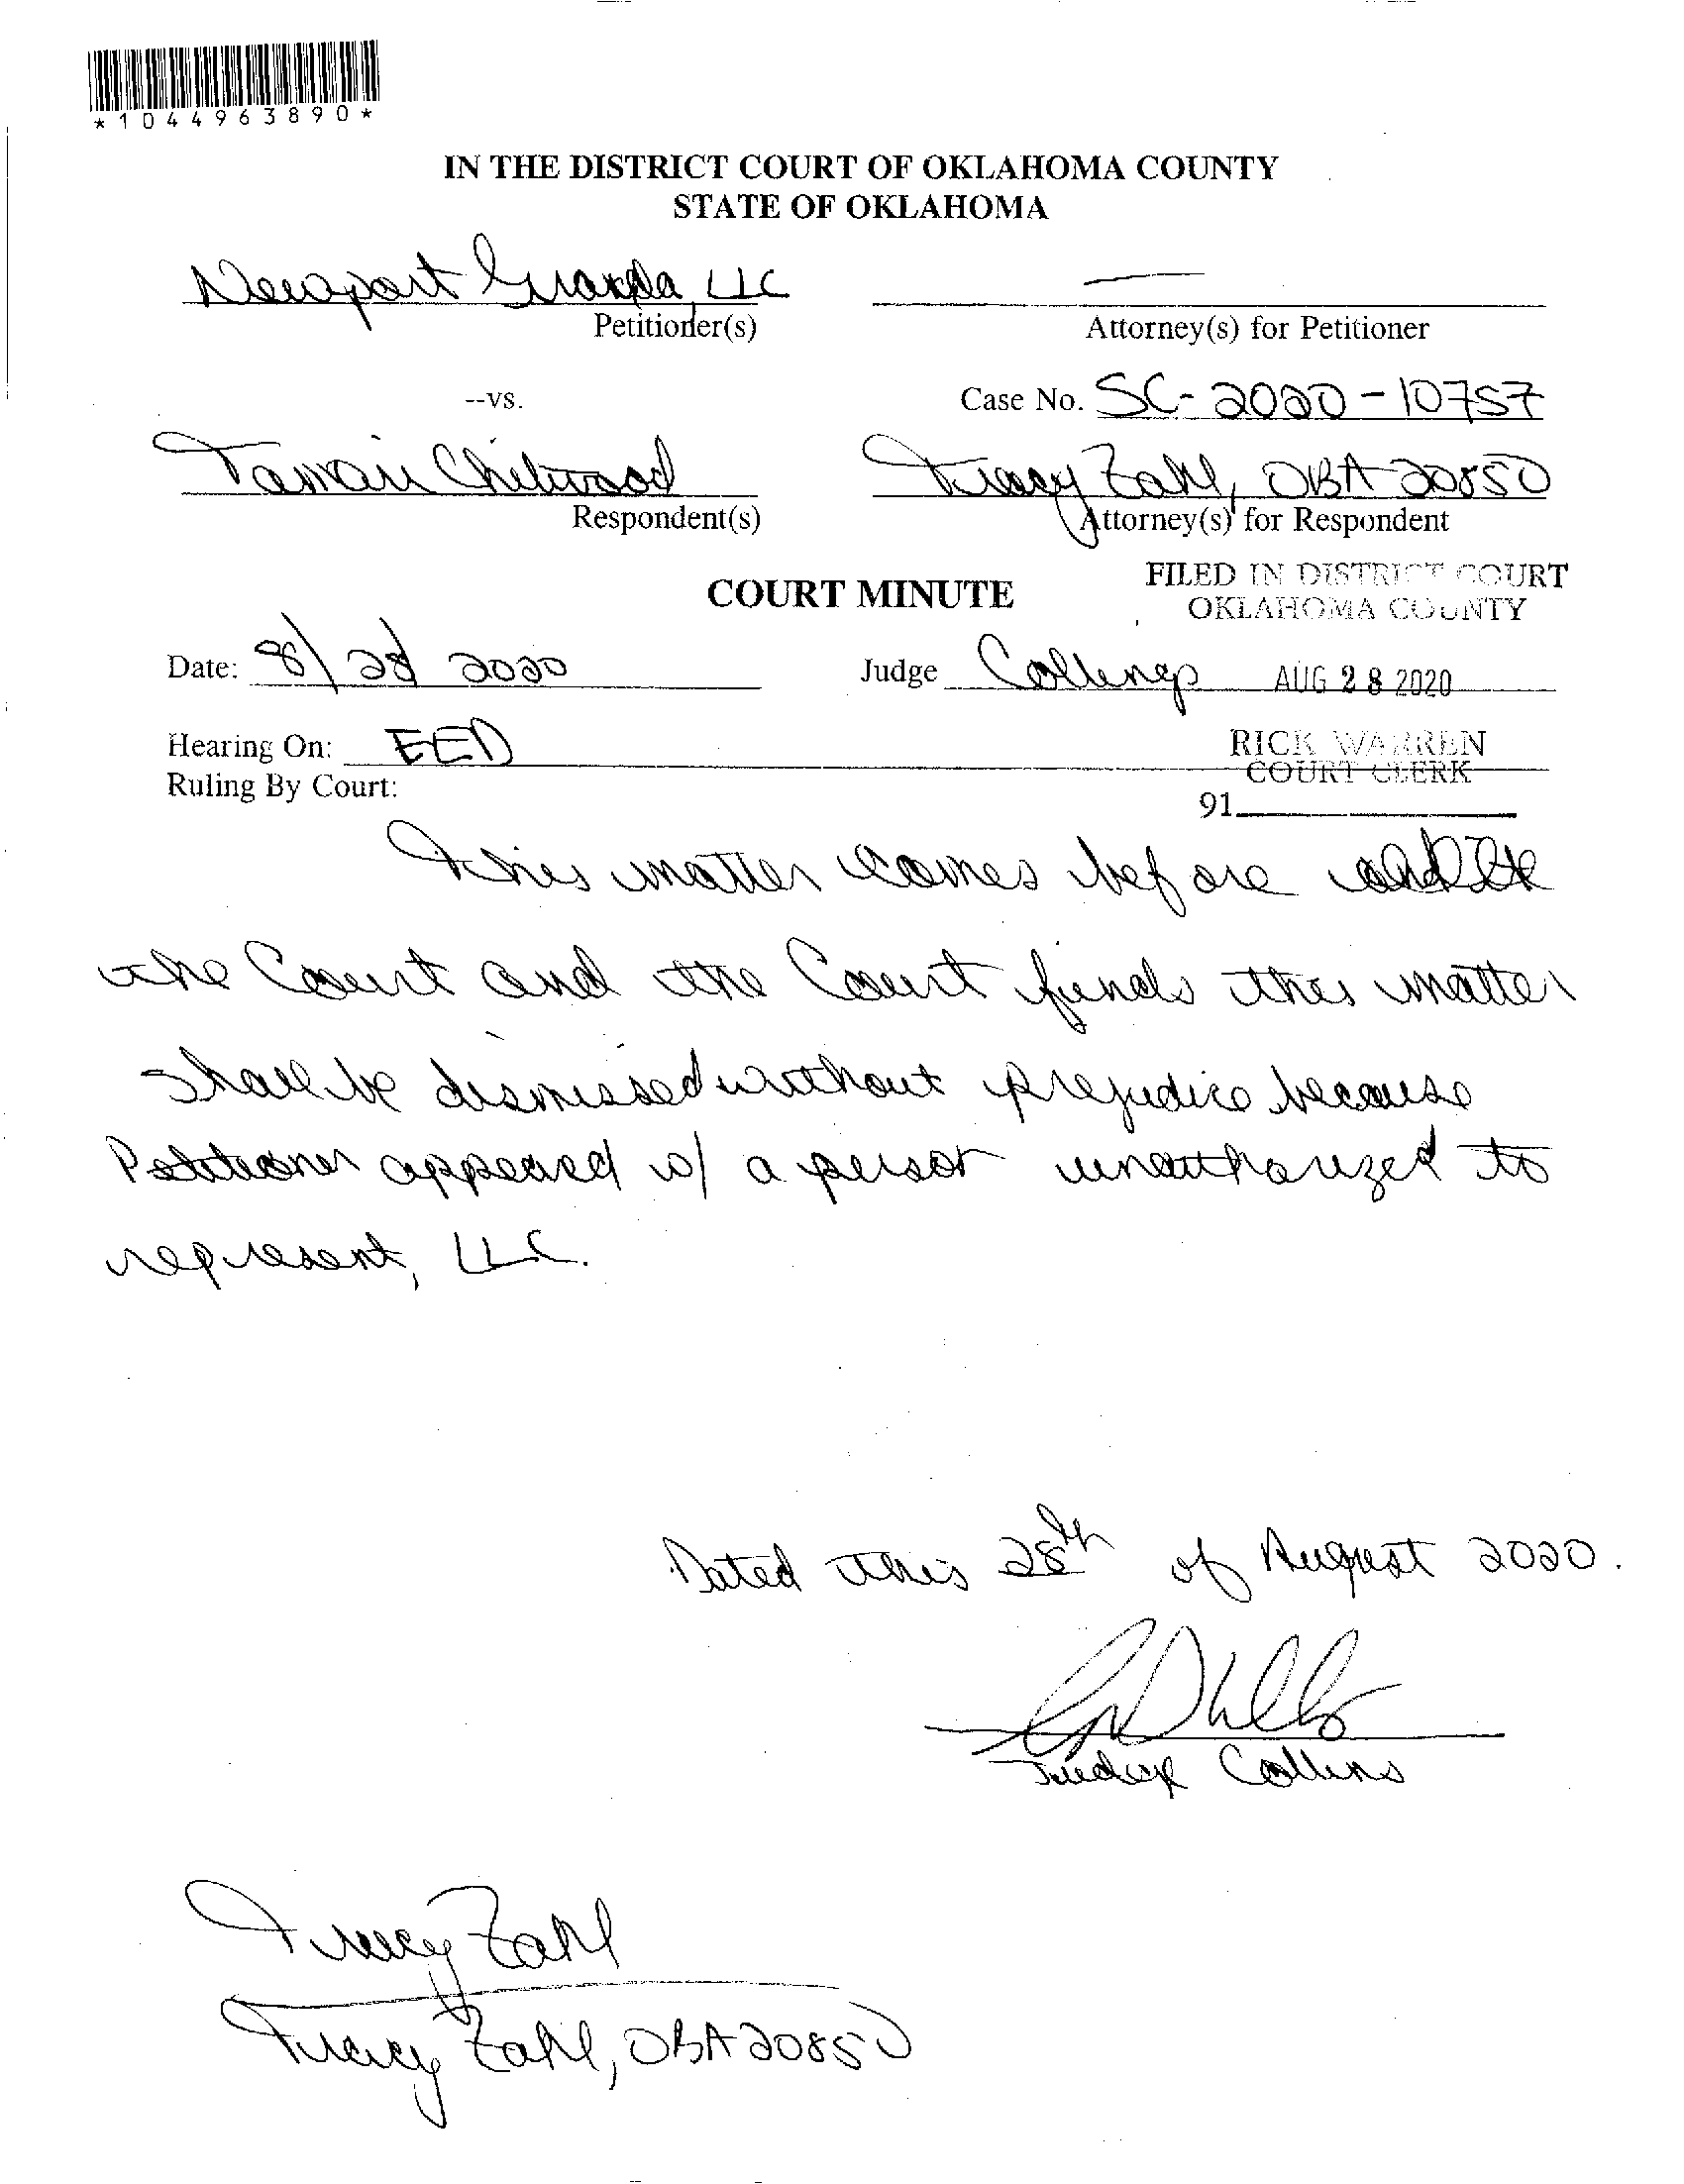 *1044963890*
IN THE DISTRICT COURT OF OKLAHOMA COUNTY
STATE OF OKLAHOMA
Newport LLC
Petitioner(s)
Attorney(s) for Petitioner
--vs.
Case No. SC-2020-10757
Respondent(s)
Tracy Zahl, OBA 20850
Attorney(s) for Respondent
COURT MINUTE
FILED IN DISTRICT COURT
OKLAHOMA COUNTY
Date: 8/28 2020
Judge Collins
AUG 28 2020
Hearing On: EED
RICK WARREN
COURT CLERK
Ruling By Court:
91
This matter comes before
the Court and the Court finds this matter
shall be dismissed without prejudice because
Petitioner appeared w/ a person unauthorized to
represent, LLC.
Dated this 28th of August 2020.
Judge Collins
Tracy Zahl
Tracy Zahl, OBA 20850